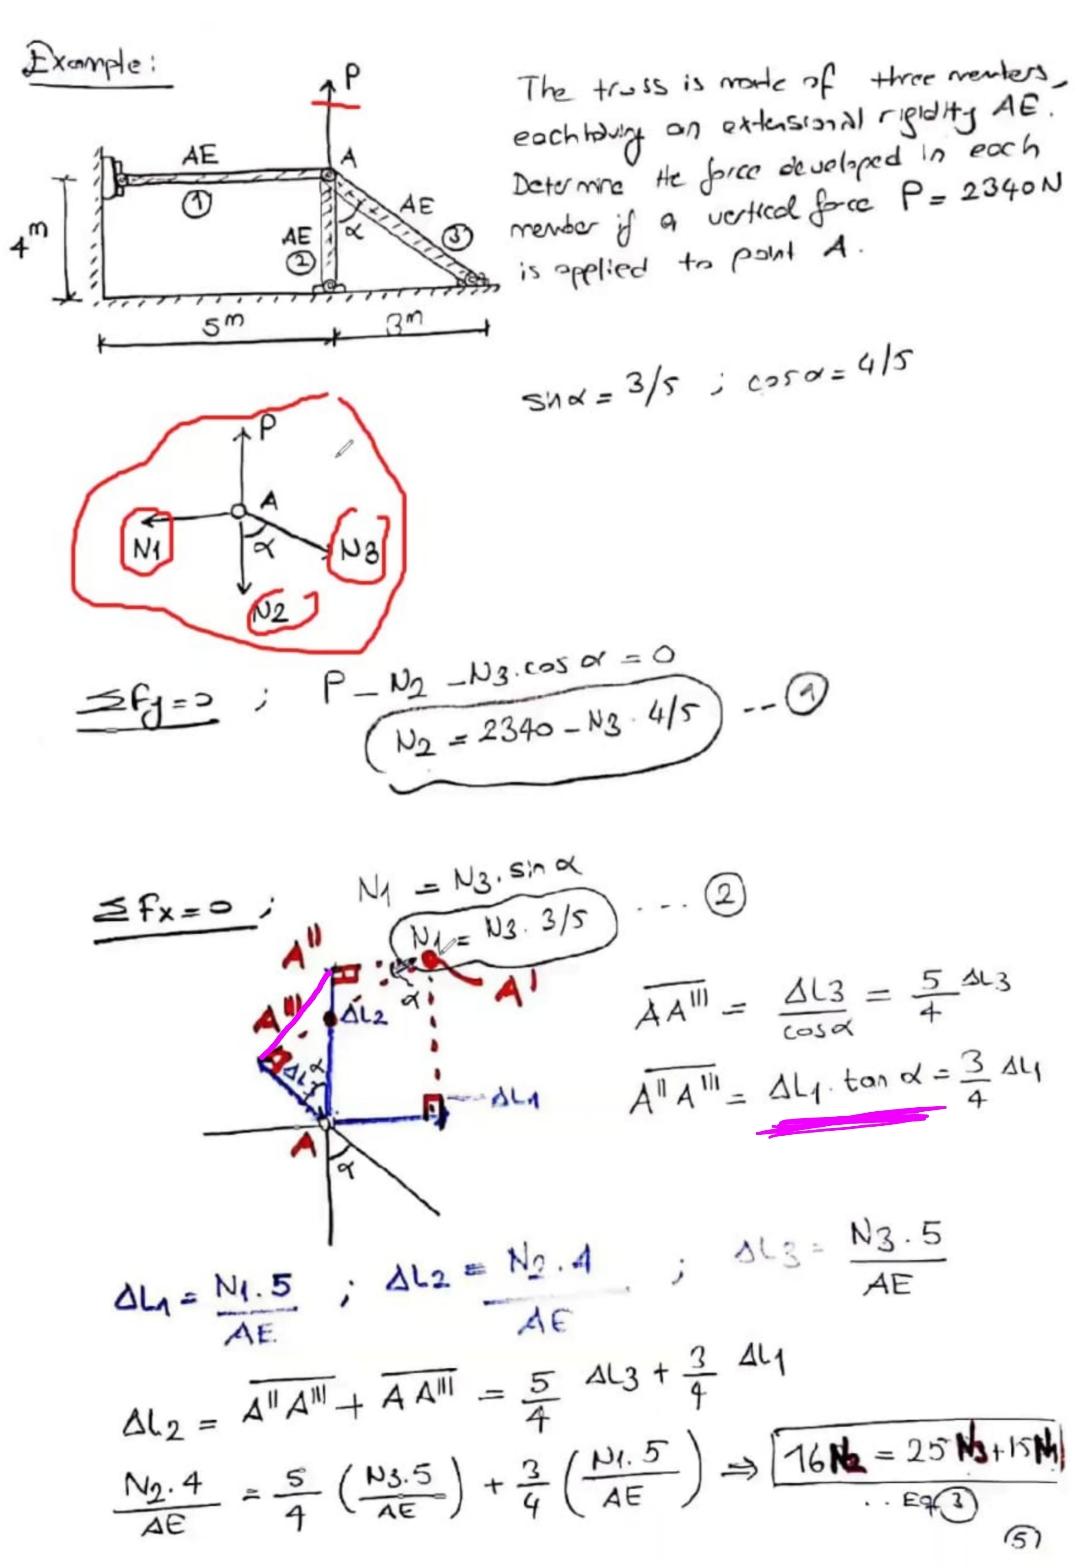 Example:
P
The truss is made of three members,
each having an extensional rigidity AE.
Determine the force developed in each
member if a vertical force P = 2340N
is applied to point A.
AE
A
①
AE
AE
②
α
③
4m
5m
3m
sinα = 3/5 ; cosα = 4/5
P
A
N1
α
N3
N2
ΣFy=0 ; P - N2 - N3.cosα = 0
N2 = 2340 - N3 . 4/5 --- ①
ΣFx=0 ; N1 = N3. sinα
N1 = N3. 3/5 .... ②
A''
α
A'
A'''
ΔL2
ΔL3
α
ΔL1
A
α
AA''' = ΔL3/cosα = 5/4 ΔL3
A''A''' = ΔL1. tanα = 3/4 ΔL1
ΔL1 = N1.5/AE ; ΔL2 = N2.4/AE ; ΔL3 = N3.5/AE
ΔL2 = A''A''' + AA''' = 5/4 ΔL3 + 3/4 ΔL1
N2.4/AE = 5/4 (N3.5/AE) + 3/4 (N1.5/AE) ⇒ 16N2 = 25N3+15N1
.. Eq ③
⑤